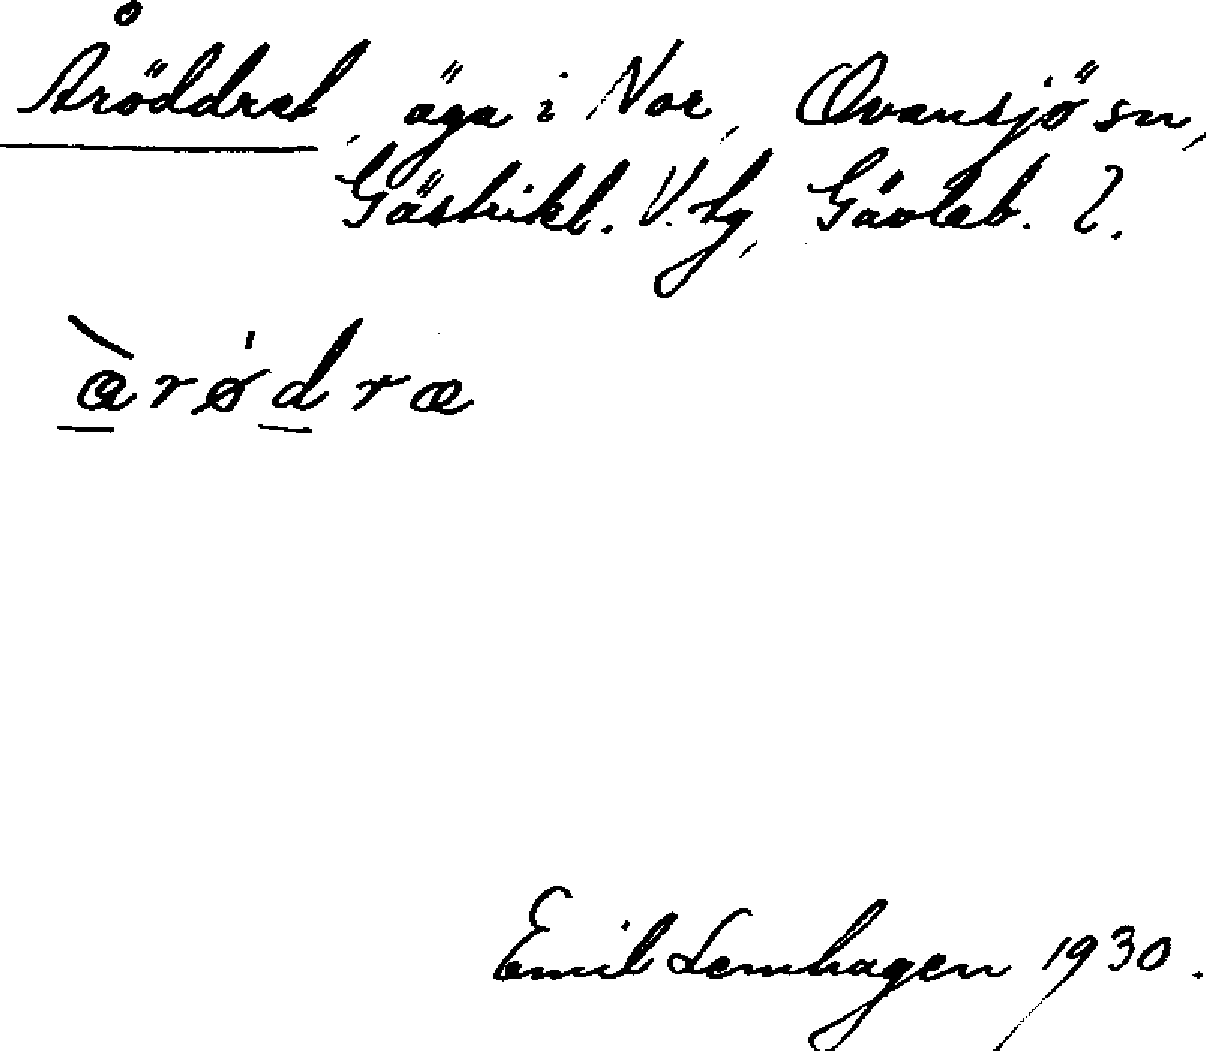 Åröddret, äga i Nor, Ovansjö sn,
Gästrikl. V. tg, Gävleb. l.
àrødræ
Emil Lemhagen 1930.